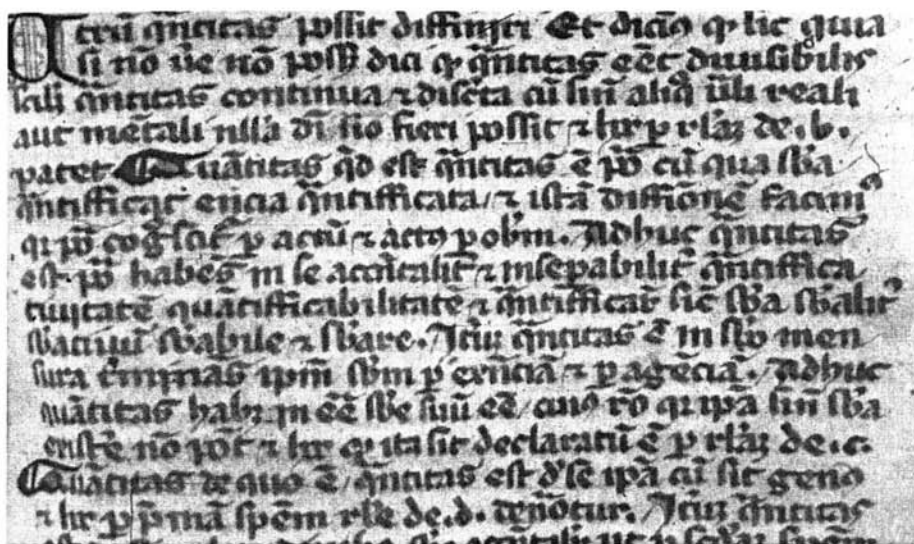 Utrū q̄ntitas possit diffiniri Et dicim⁹ qꝫ sic quia
si nō v̄e nō poss̄ dici qꝫ q̄ntitas eēt diuisibilis
scil̄ q̄ntitas continua ⁊ discͣta cū sin̄ aliq̄ vl̄i reali
aut mētali nllā di͞uisio fieri possit ⁊ hͦ p rl̄aꝫ de .b.
patet Quātitas qͥd est q̄ntitas ē pͫ cū qua sb̄a
q̄ntifficat͛ encia q̄ntifficata ⁊ istā diffiōnē facim⁹
qꝛ pͫ coḡscit͛ p actū ⁊ act⁹ p ob̄m. Adhuc q̄ntitas
est pͫ habēs in se accn̄talit͛ ⁊ insepabilit͛ q̄ntiffica
tiuitatē quātifficabilitatē ⁊ q̄ntifficar̄ sic̄ sb̄a sb̄alit͛
sb̄atiuū sb̄abile ⁊ sb̄are. Itē q̄ntitas ē in sb̄o men
sura t͛minās ipm̄ sb̄m p exn̄ciā ⁊ p agēciā. Adhuc
quātitas habꝫ in eē sb̄e suū eē, cui⁹ rō qꝛ ipā sin̄ sb̄a
existͤe nō pōt ⁊ hͦ qꝫ ita sit declaratū ē p rl̄aꝫ de .c.
Quātitas de quo ē, q̄ntitas est d̄ se ipā cū sit gen⁹
⁊ hͦ p p̄mā spēm rl̄e de .d. denōtur. Itē q̄ntitas